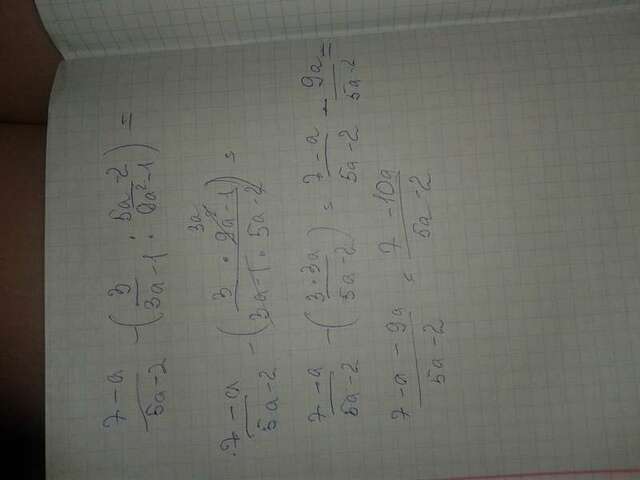 (7-a)/(5a-2) - (3/(3a-1) : (5a-2)/(9a²-1)) =
(7-a)/(5a-2) - ((3 · 9a²-1)/(3a-1 · 5a-2)) =
3a
(7-a)/(5a-2) - ((3·3a)/(5a-2)) = (7-a)/(5a-2) - 9a/(5a-2) =
(7-a-9a)/(5a-2) = (7-10a)/(5a-2)